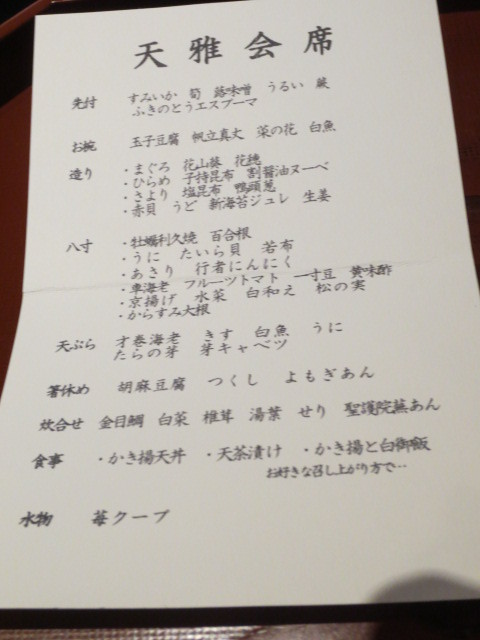 天雅会席
先付 すみいか 筍 蕗味噌 うるい 蕨
ふきのとうエスプーマ
お椀 玉子豆腐 帆立真丈 菜の花 白魚
造り ・まぐろ 花山葵 花穂
・ひらめ 子持昆布 割醤油ヌーベ
・さより 塩昆布 鴨頭葱
・赤貝 うど 新海苔ジュレ 生姜
八寸 ・牡蠣利久焼 百合根
・うに たいら貝 若布
・あさり 行者にんにく
・車海老 フルーツトマト 一寸豆 黄味酢
・京揚げ 水菜 白和え 松の実
・からすみ大根
天ぷら 才巻海老 きす 白魚 うに
たらの芽 芽キャベツ
箸休め 胡麻豆腐 つくし よもぎあん
炊合せ 金目鯛 白菜 椎茸 湯葉 せり 聖護院蕪あん
食事 ・かき揚天丼 ・天茶漬け ・かき揚と白御飯
お好きな召し上がり方で…
水物 苺クープ